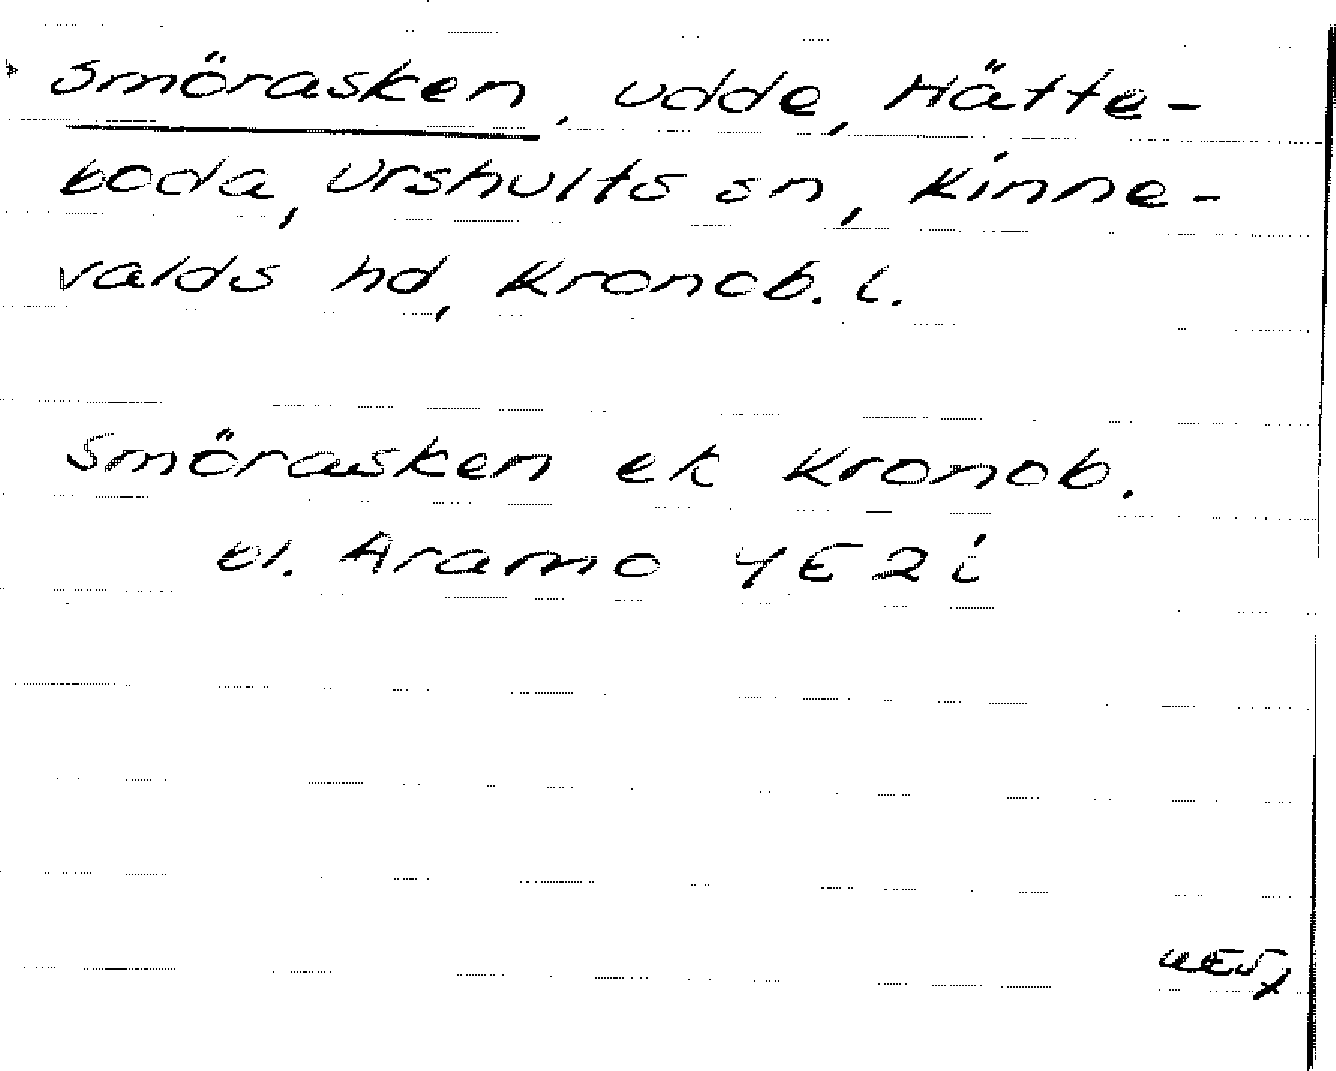 Smörasken, udde, Hätte-
boda, Urshults sn, Kinne-
valds hd, Kronob. l.
Smörasken ek Kronob.
bl. Aramo 4E2i